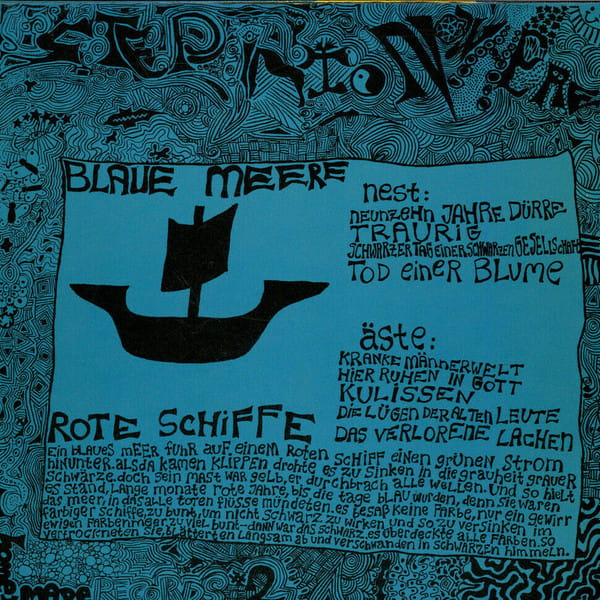 BLAUE MEERE
nest:
neunzehn JAHRE DÜRRE
TRAURIG
SCHWARZER TAG EINER SCHWARZEN GESELLSCHAFT
TOD einer BLUME
äste:
KRANKE MÄNNERWELT
HIER RUHEN IN GOTT
KULISSEN
DIE LÜGEN DER ALTEN LEUTE
DAS VERLORENE LACHEN
ROTE SCHIFFE
Ein BLAUES MEER FUHR AUF EINEM ROTEN SCHIFF EINEN GRÜNEN STROM
HINUNTER. ALS DA KAMEN KLIPPEN DROHTE ES ZU SINKEN IN DIE GRAUHEIT GRAUER
SCHWÄRZE. DOCH SEIN MAST WAR GELB, ER DURCHBRACH ALLE WELLEN. UND SO HIELT
ES STAND, LANGE MONATE ROTE JAHRE, BIS DIE TAGE BLAU WURDEN, DENN SIE WAREN
DAS MEER, IN DAS ALLE TOREN FLÜSSE MÜNDETEN. ES BESAß KEINE FARBE, NUR EIN GEWIRR
FARBIGER SCHIFFE, ZU BUNT, UM NICHT SCHWARZ ZU WIRKEN, UND SO ZU VERSINKEN IM
EWIGEN FARBENMEER. ZU VIEL BUNT - DANN WAR DAS SCHWARZ. ES ÜBERDECKTE ALLE FARBEN. SO
VERTROCKNETEN SIE, BLÄTTERTEN LANGSAM AB UND VERSCHWANDEN IN SCHWARZEN HIMMELN.
MADE RECORDS 2